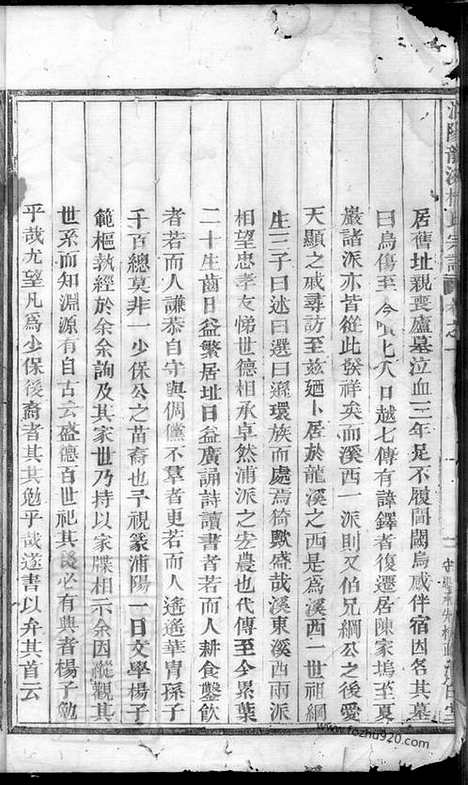 浦陽龍溪楊氏宗譜
居舊址親喪廬墓泣血三年足不履閫閾烏咸伴宿因名其墓
曰烏傷至今噴七八日越七傳有諱鐸者復遷居陳家塢至夏
巖諸派亦皆從此發祥矣而溪西一派則又伯兄綱公之後愛
天顯之戚尋訪至茲廼卜居於龍溪之西是為溪西一世祖綱
生三子曰述曰選曰遜環族而處焉猗歟盛哉溪東溪西兩派
相望忠孝友悌世德相承卓然浦派之宏農也代傳至今累葉
二十生齒日益繁居址日益廣誦詩讀書者若而人耕食鑿飲
者若而人謙恭自守與倜儻不羣者更若而人遙遙華胄孫子
千百總莫非一少保公之苗裔也予視篆浦陽一日文學楊子
範樞執經於余余詢及其家世乃持以家牒相示余因縱觀其
世系而知淵源有自古云盛德百世祀其後必有興者楊子勉
乎哉尤望凡為少保後裔者其共勉乎哉遂書以弁其首云
www.fozhu920.com